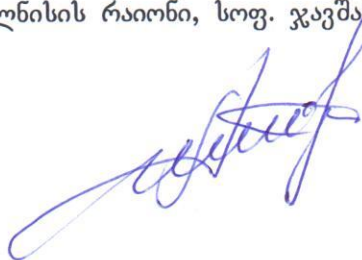 ლნისის რაიონი, სოფ. ჯავშა